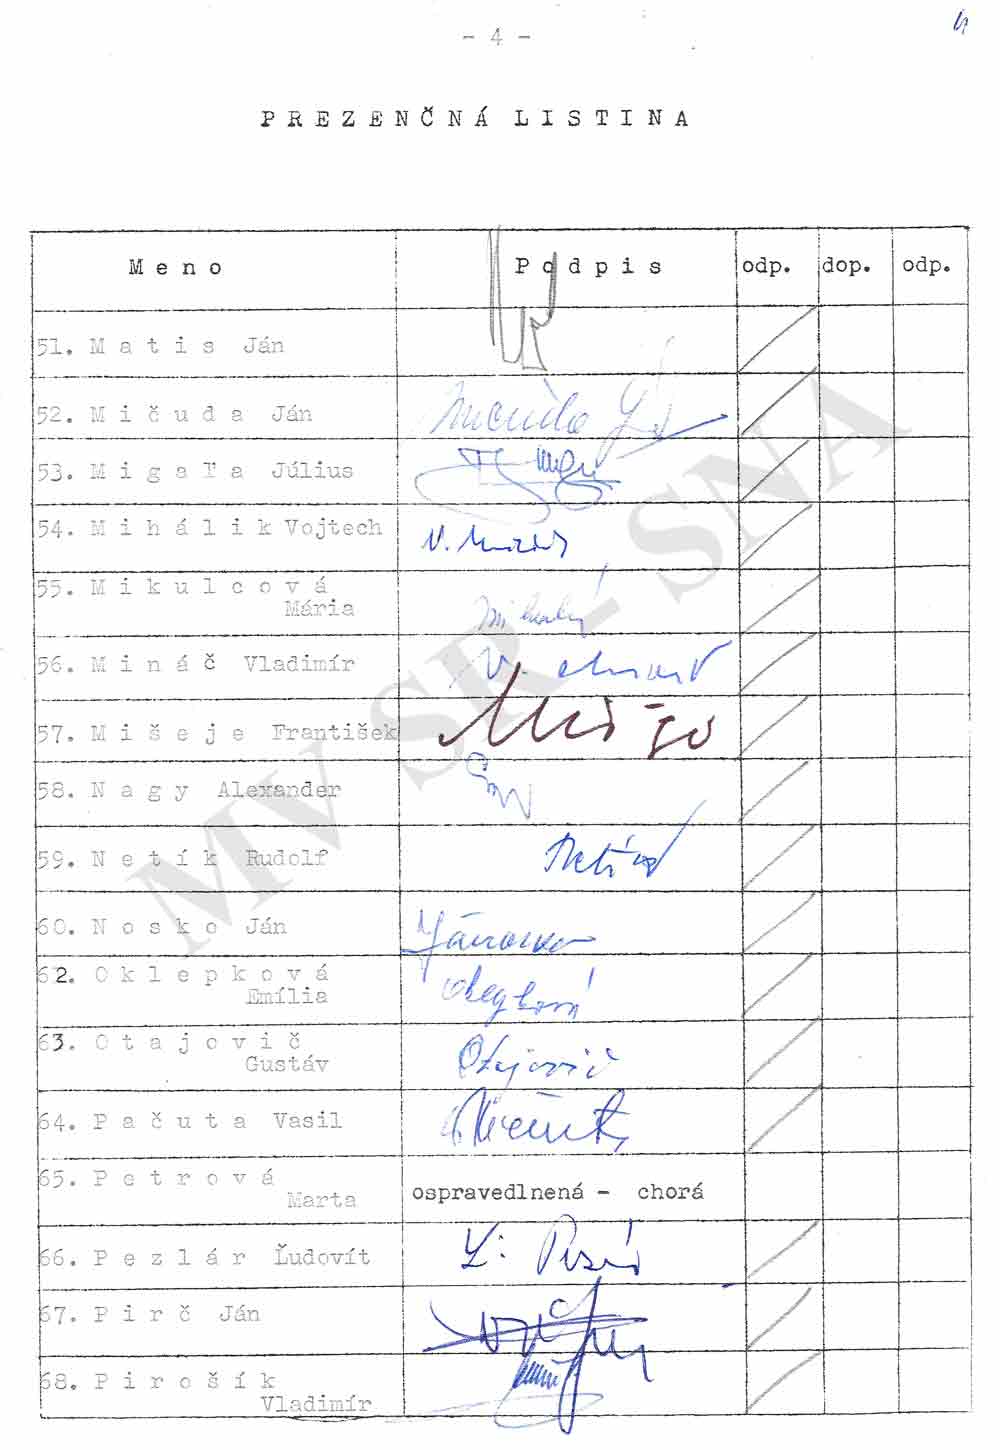 - 4 -
4
PREZENČNÁ LISTINA
Meno Podpis odp. dop. odp.
51. Matis Ján
52. Mičuda Ján
53. Migaľa Július
54. Mihálik Vojtech
55. Mikulcová
Mária
56. Mináč Vladimír
57. Mišeje František
58. Nagy Alexander
59. Netík Rudolf
60. Nosko Ján
62. Oklepková
Emília
63. Otajovič
Gustáv
Otajovič
64. Pačuta Vasil
65. Petrová
Marta
ospravedlnená - chorá
66. Pezlár Ľudovít
67. Pirč Ján
68. Pirošík
Vladimír
MV SR - SNA